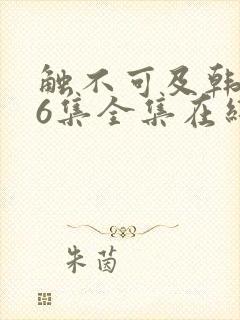 触不可及韩
6集全集在线
朱茵